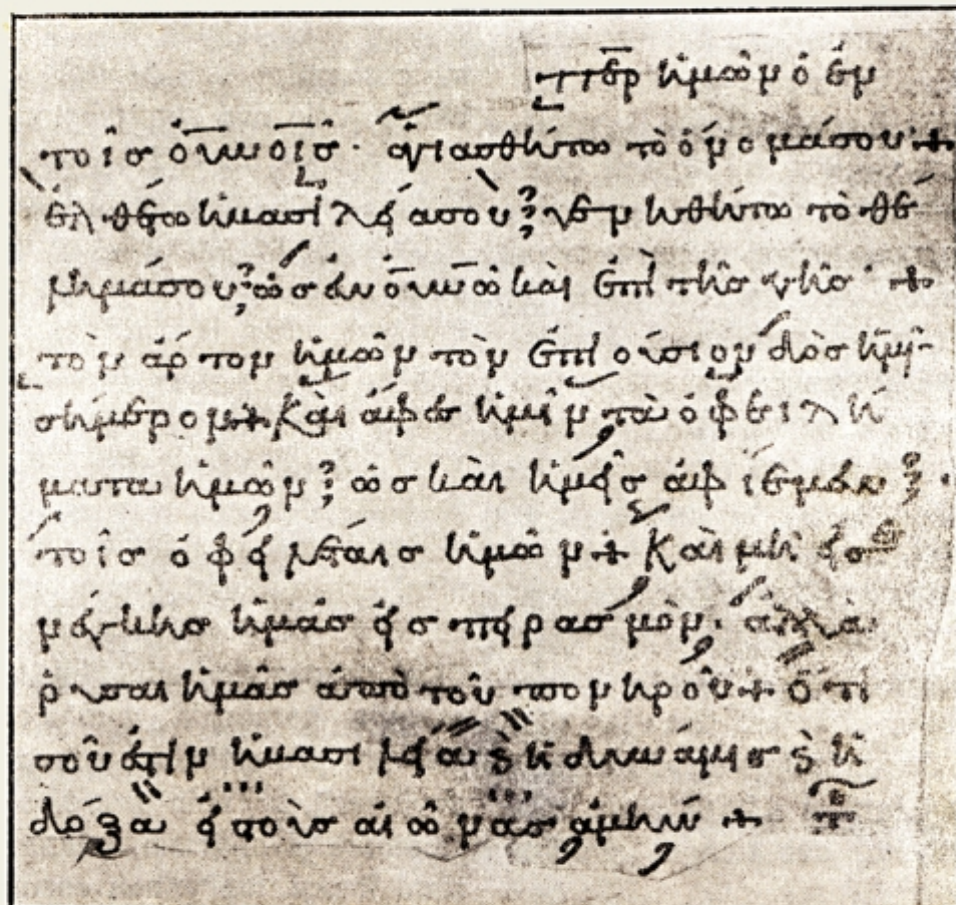 π̅ε̅ρ ἡμῶν ὁ ἐν
τοῖς ὀ̅υ̅ν̅ο̅ι̅ς̅· ἁγιασθήτω τὸ ὄνομά σου +
ἐλθέτω ἡ βασιλεία σου· γενηθήτω τὸ θέ
λημά σου· ὡς ἐν ὀ̅υ̅ν̅ῶ̅ καὶ ἐπὶ τῆς γῆς· +
τὸν ἄρτον ἡμῶν τὸν ἐπιούσιον δὸς ἡμῖ
σήμερον + Καὶ ἄφες ἡμῖν τὰ ὀφειλή
ματα ἡμῶν· ὡς καὶ ἡμεῖς ἀφίεμεν·
τοῖς ὀφειλέταις ἡμῶν + Καὶ μὴ εἰσε
νέγκης ἡμᾶς εἰς πειρασμὸν· ἀλλὰ
ρύσαι ἡμᾶς ἀπὸ τοῦ πονηροῦ + ὅτι
σοῦ ἐστιν ἡ βασιλεία ϗ ἡ δύναμις ϗ ἡ
δόξα εἰς τοὺς αἰῶνας ἀμήν +